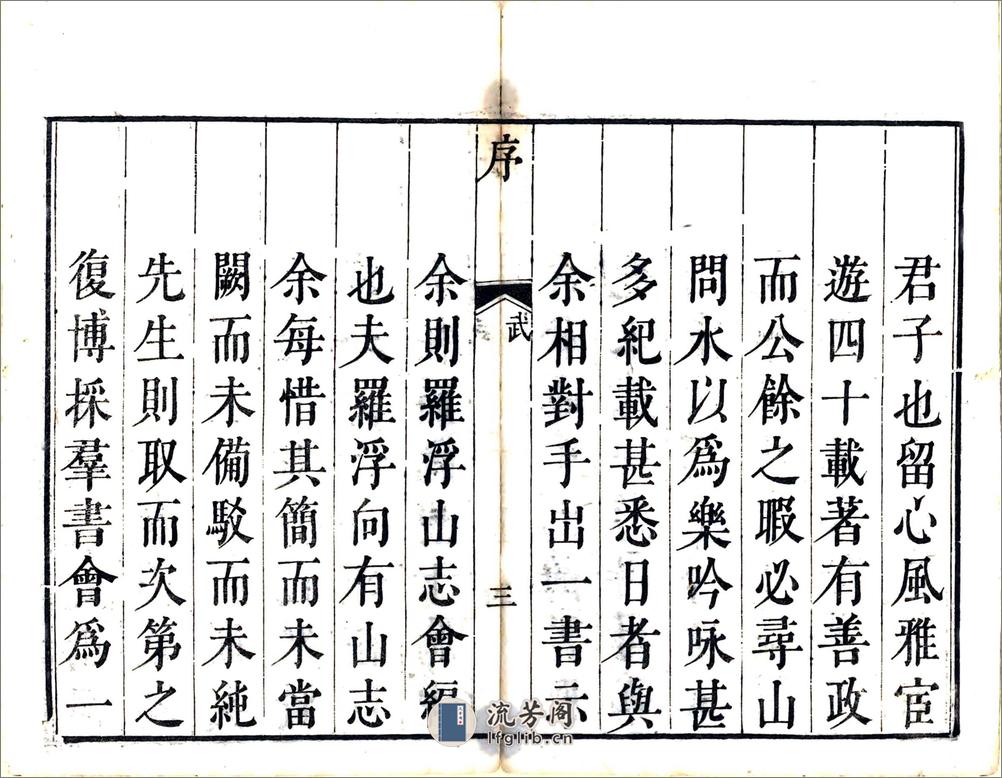 君子也留心風雅宦
遊四十載著有善政
而公餘之暇必尋山
問水以為樂吟咏甚
多紀載甚悉日者與
余相對手出一書示
序
武
三
余則羅浮山志會編
也夫羅浮向有山志
余每惜其簡而未當
闕而未備駁而未純
先生則取而次第之
復博採羣書會為一
流芳阁
lfglib.cn